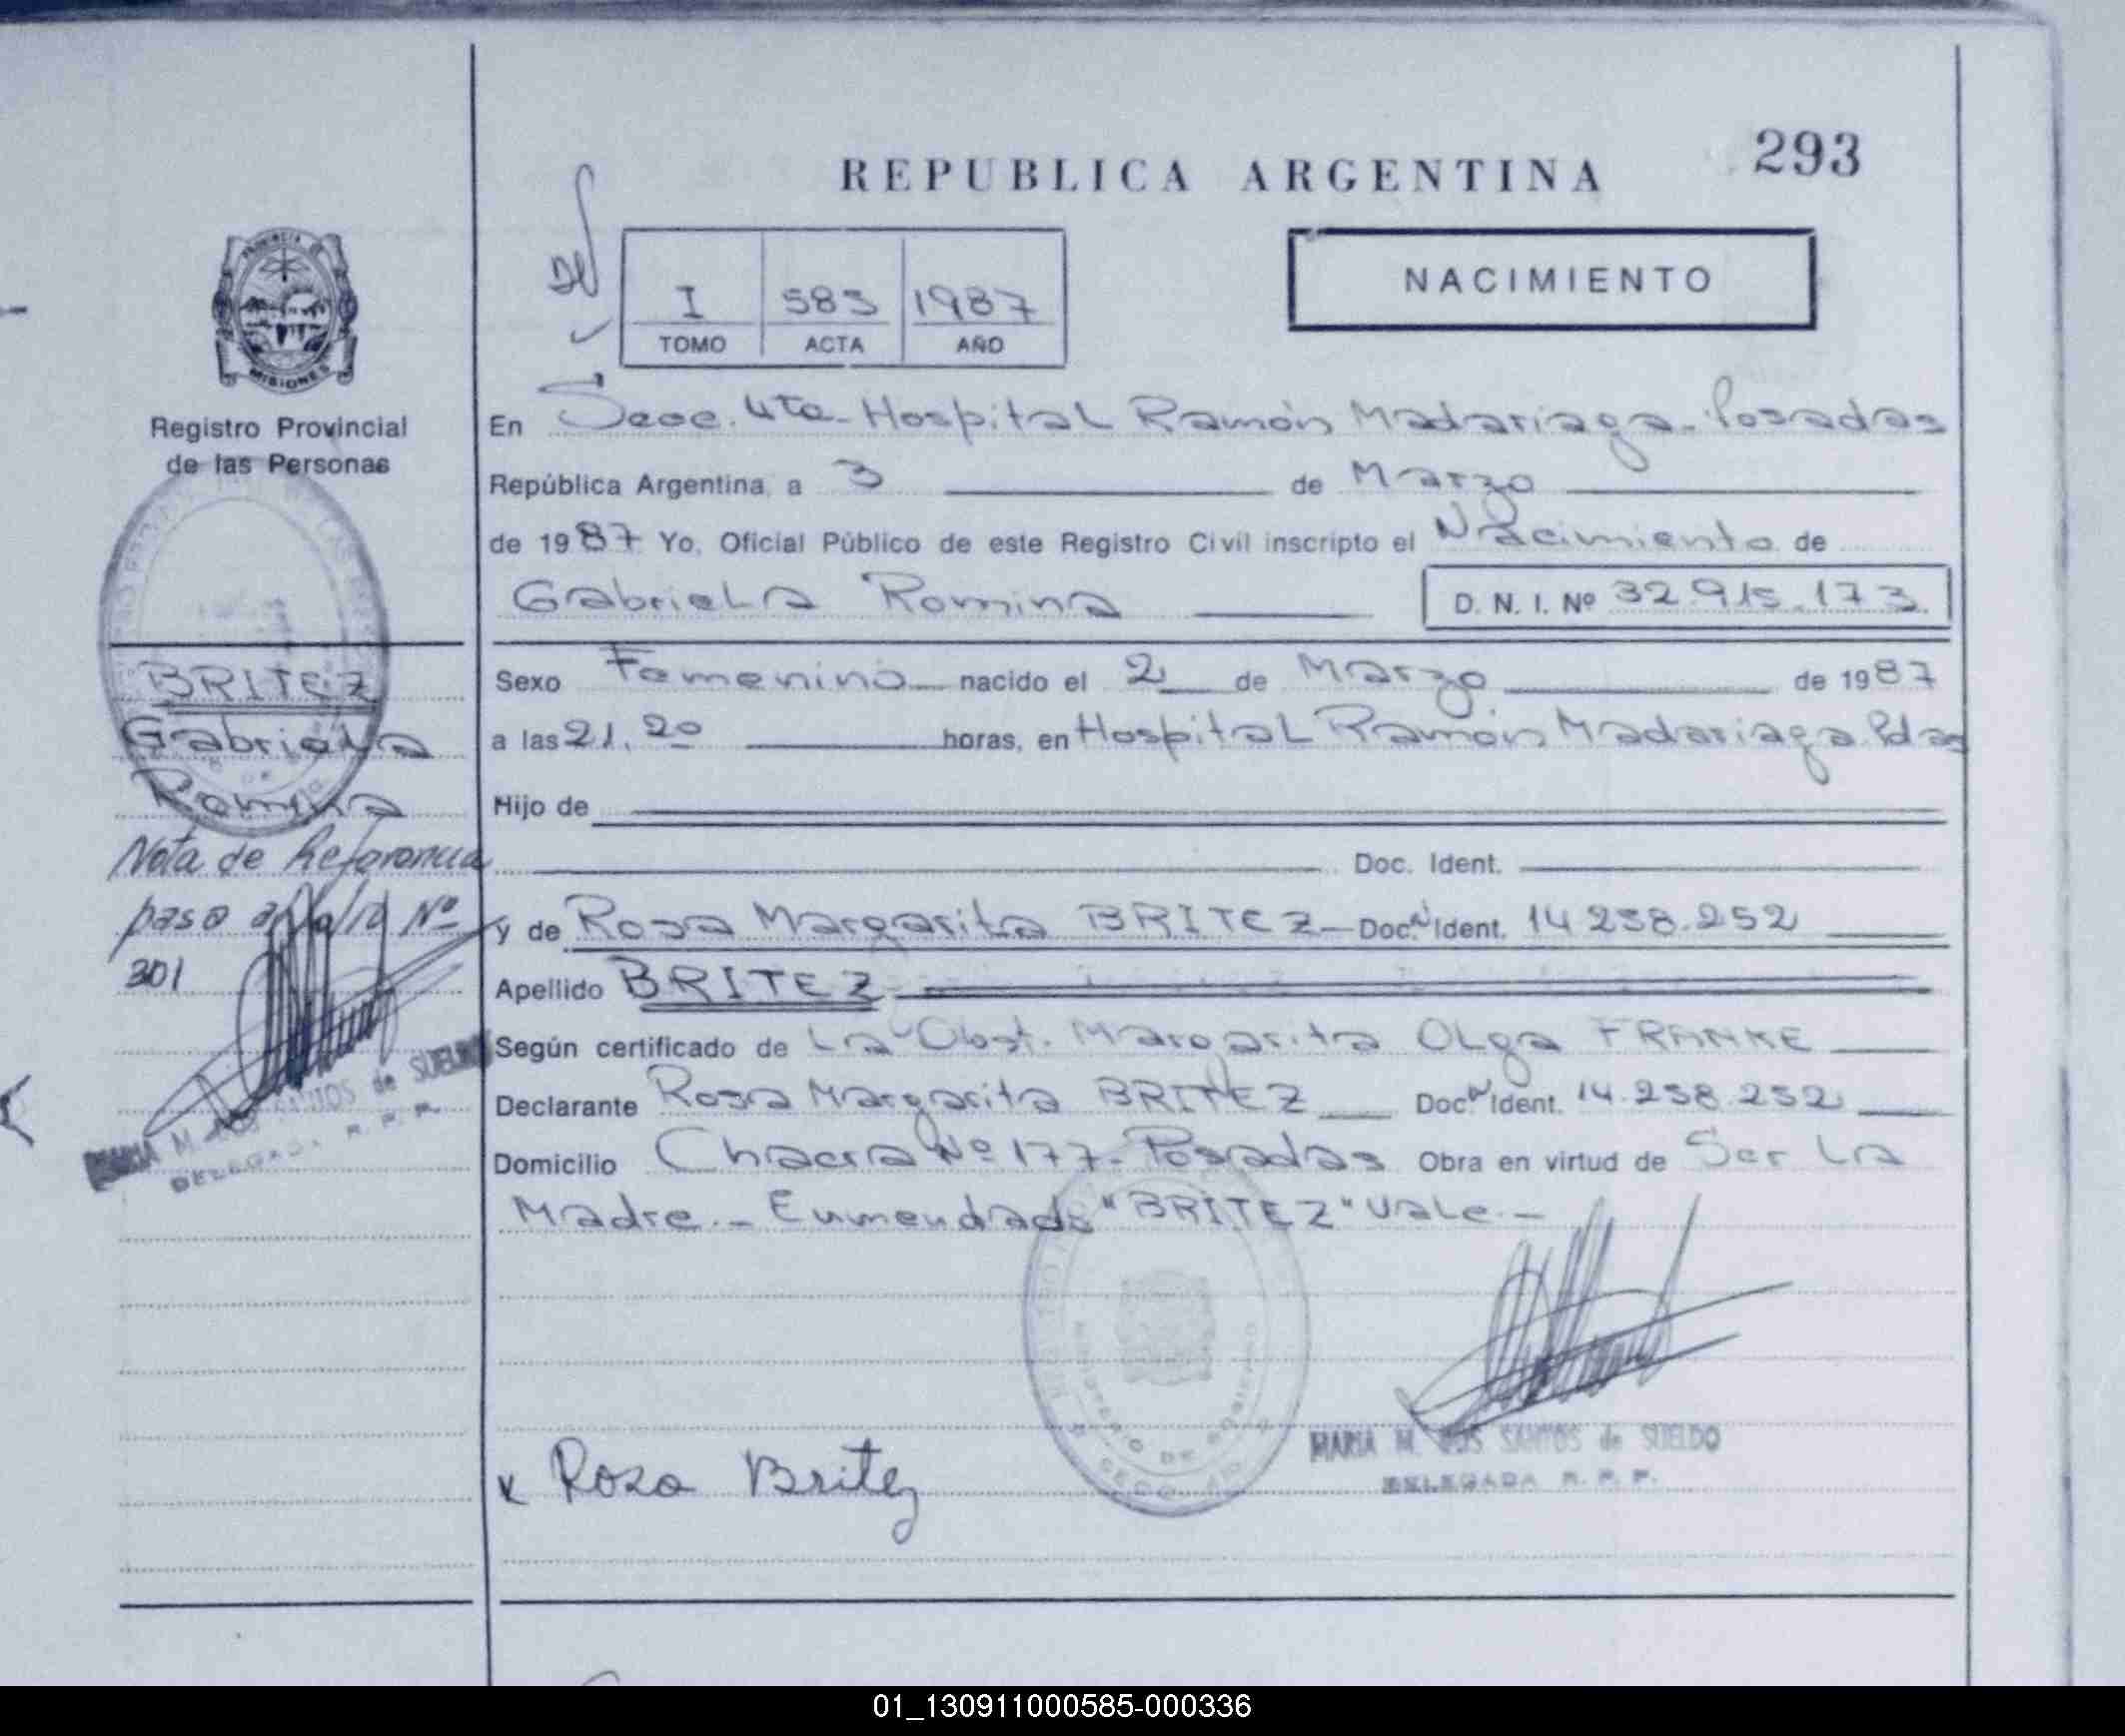 293
REPUBLICA ARGENTINA
NACIMIENTO
I 585 1987
TOMO ACTA AÑO
PROVINCIA DE
MISIONES
Registro Provincial
de las Personas
BRITEZ
Gabriela
Romina
Nota de Referencia
pasa a folio Nº
301
MARIA M. DOS SANTOS de SUELDO
DELEGADA R. P. P.
En Secc. 4ta. Hospital Ramón Madariaga - Posadas
República Argentina, a 3 de Marzo
de 1987 Yo, Oficial Público de este Registro Civil inscripto el Nacimiento de
Gabriela Romina D. N. I. Nº 32.915.173
Sexo Femenino nacido el 2 de Marzo de 1987
a las 21,20 horas, en Hospital Ramón Madariaga Pdas
Hijo de
Doc. Ident.
y de Rosa Margarita BRITEZ - Doc. N Ident. 14 238.252
Apellido BRITEZ
Según certificado de La Obst. Margarita Olga FRANKE
Declarante Rosa Margarita BRITEZ Doc. N Ident. 14.238.252
Domicilio Chacra Nº 177 - Posadas Obra en virtud de Ser La
Madre. - Enmendado "BRITEZ" Vale. -
MINISTERIO DE GOBIERNO
x Rosa Britez
MARIA M. DOS SANTOS de SUELDO
DELEGADA R. P. P.
01_130911000585-000336